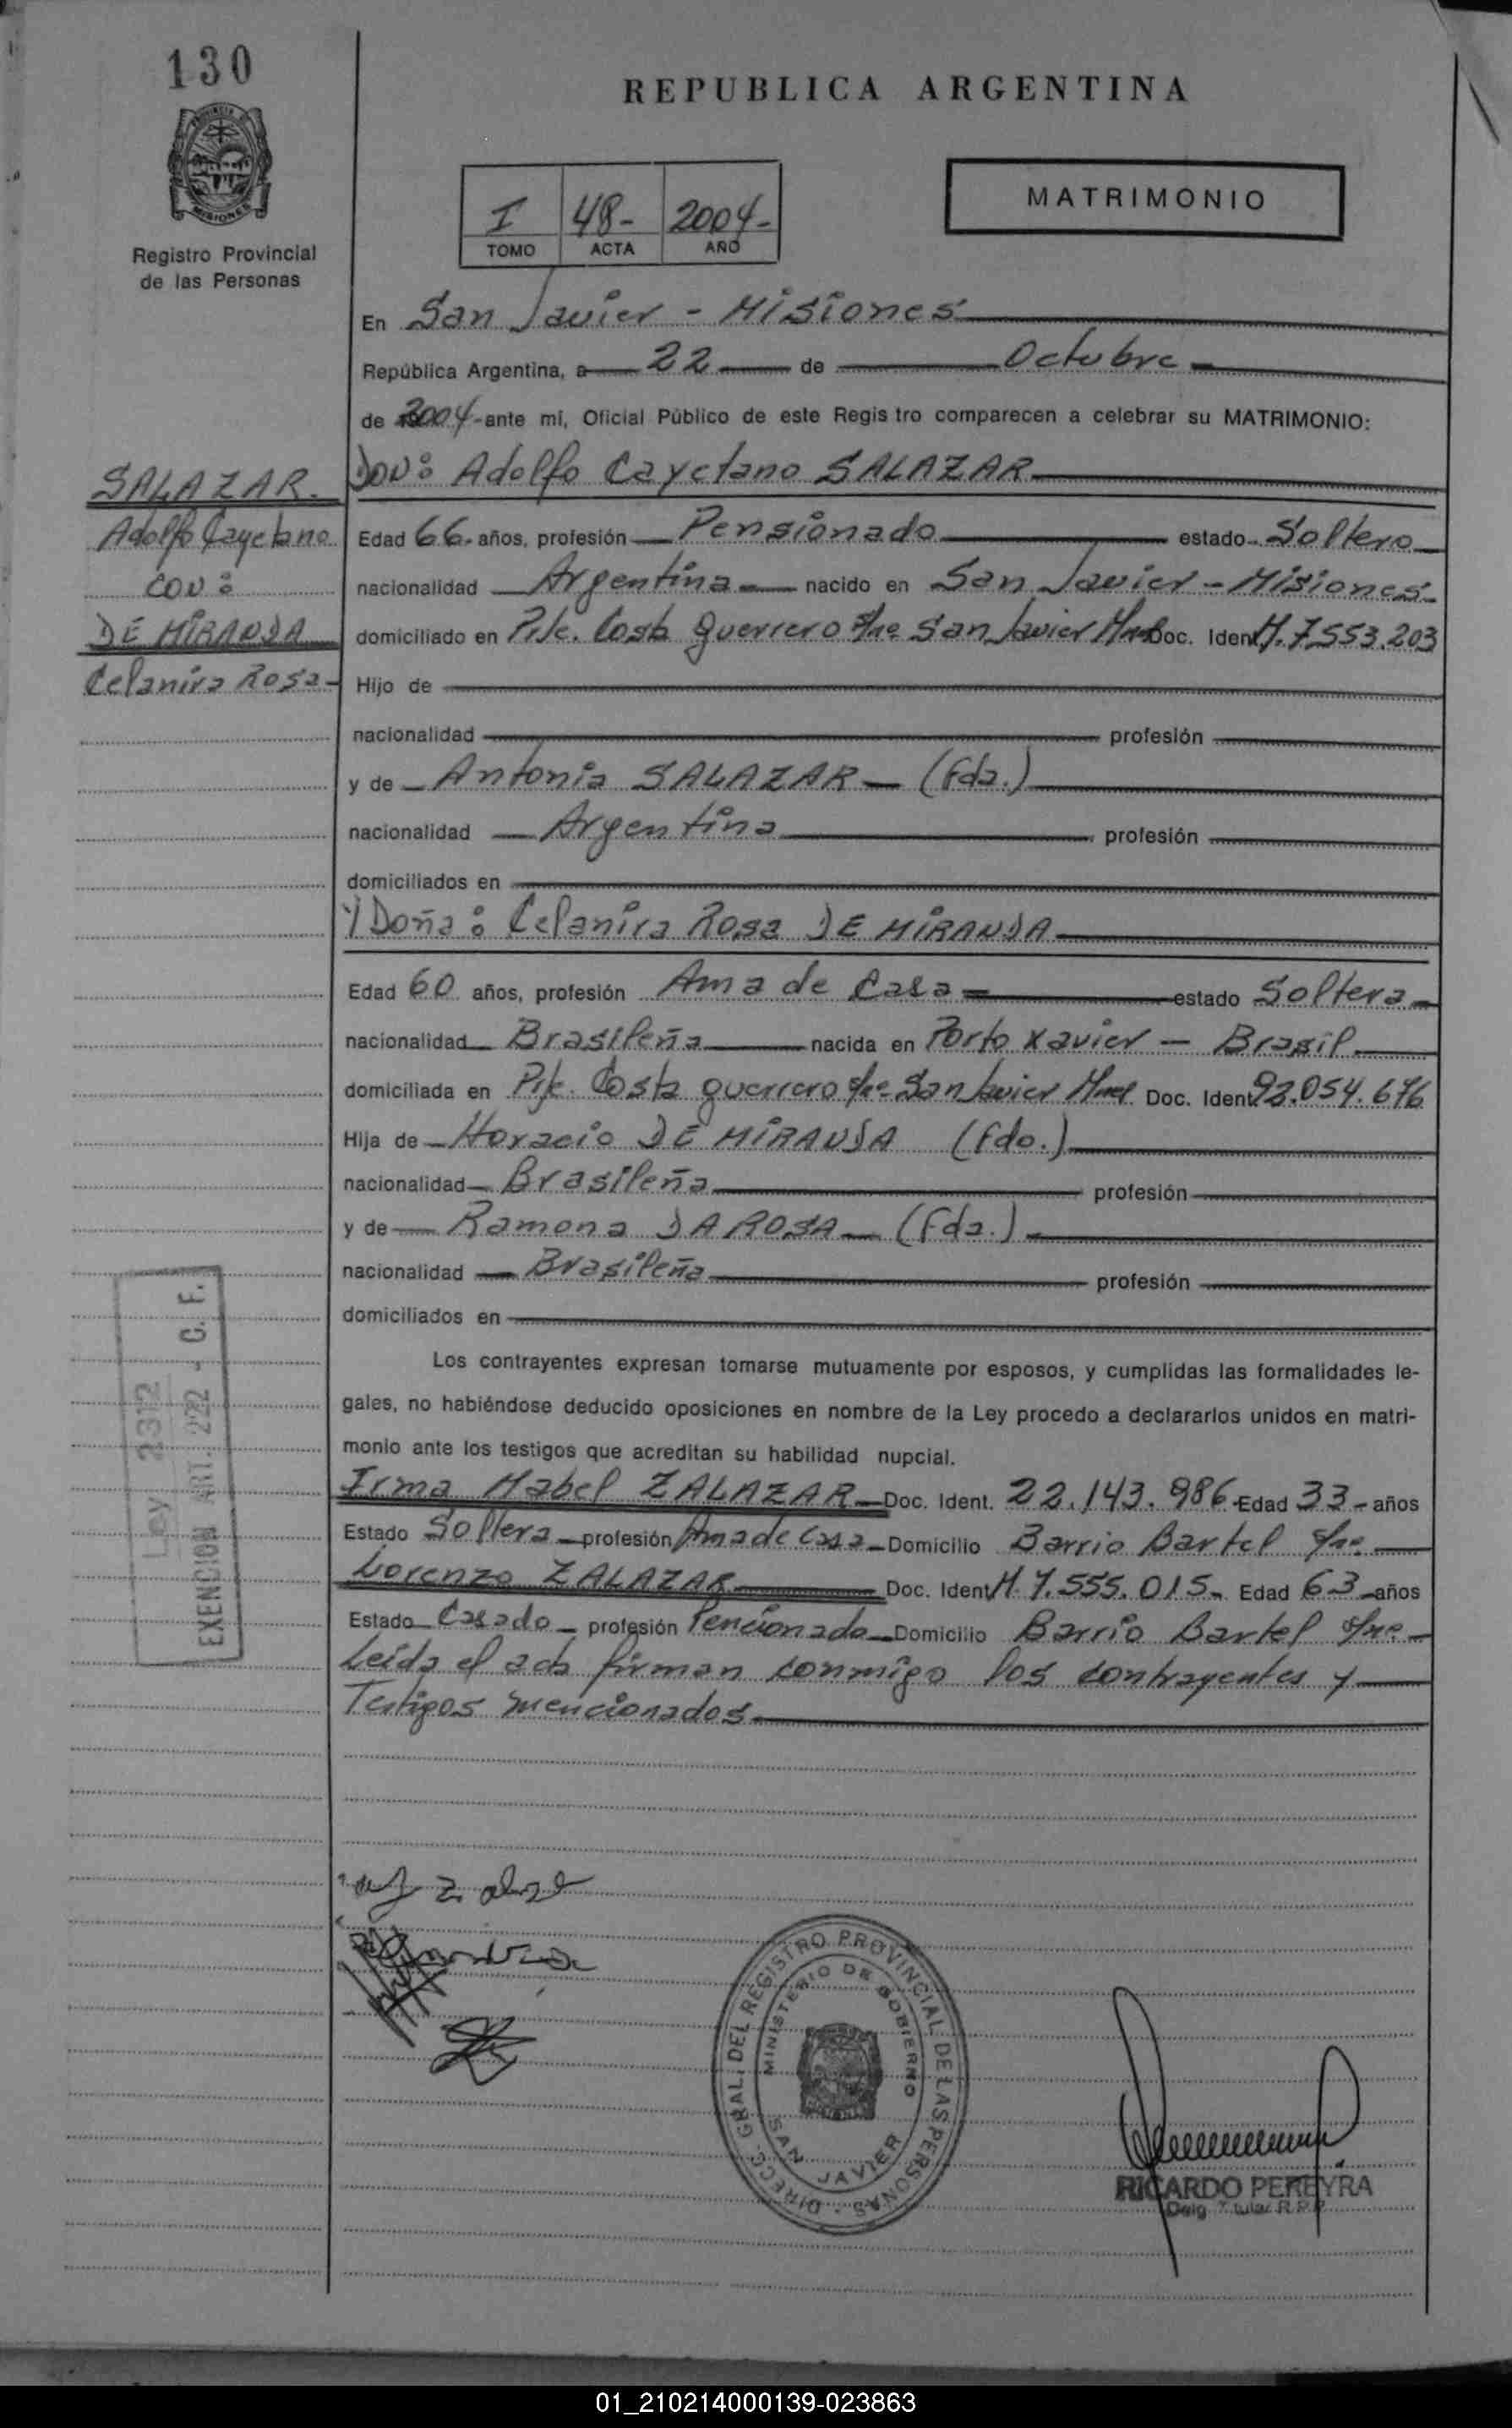 130
REPUBLICA ARGENTINA
PROVINCIA DE
MISIONES
Registro Provincial
de las Personas
I 48- 2004-
TOMO ACTA AÑO
MATRIMONIO
En San Javier - Misiones
República Argentina, a 22 de Octubre
de 2004-ante mi, Oficial Público de este Regis tro comparecen a celebrar su MATRIMONIO:
SALAZAR.
Adolfo Cayetano
CON:
DE MIRANDA
Celanira Rosa-
DON: Adolfo Cayetano SALAZAR
Edad 66 años, profesión Pensionado estado Soltero
nacionalidad Argentina nacido en San Javier - Misiones
domiciliado en Pje. Costa Guerrero s/n San Javier Mnes Doc. Ident M. 7.553.203
Hijo de
nacionalidad profesión
y de Antonia SALAZAR (Fda.)
nacionalidad Argentina profesión
domiciliados en
Y Doña: Celanira Rosa DE MIRANDA
Edad 60 años, profesión Ama de Casa estado Soltera
nacionalidad Brasileña nacida en Porto Xavier - Brasil
domiciliada en Pje. Costa guerrero s/n San Javier Doc. Ident 92.054.676
Hija de Horacio DE MIRANDA (Fdo.)
nacionalidad Brasileña profesión
y de Ramona DA ROSA (Fda.)
nacionalidad Brasileña profesión
domiciliados en
Los contrayentes expresan tomarse mutuamente por esposos, y cumplidas las formalidades le-
gales, no habiéndose deducido oposiciones en nombre de la Ley procedo a declararlos unidos en matri-
monio ante los testigos que acreditan su habilidad nupcial.
Irma Mabel ZALAZAR Doc. Ident. 22.143.986 Edad 33 años
Estado Soltera profesión Ama de Casa Domicilio Barrio Bartel s/n
Lorenzo ZALAZAR Doc. Ident M. 7.555.015 Edad 63 años
Estado Casado profesión Pencionado Domicilio Barrio Bartel s/n
Leída el acta firman conmigo los contrayentes y
Testigos mencionados
Ley 2312
EXENCION ART. 222 - C. F.
DIRECC. GRAL. DEL REGISTRO PROVINCIAL DE LAS PERSONAS
MINISTERIO DE GOBIERNO
SAN JAVIER
RICARDO PEREYRA
Deleg. Titular R.P.P.
01_210214000139-023863